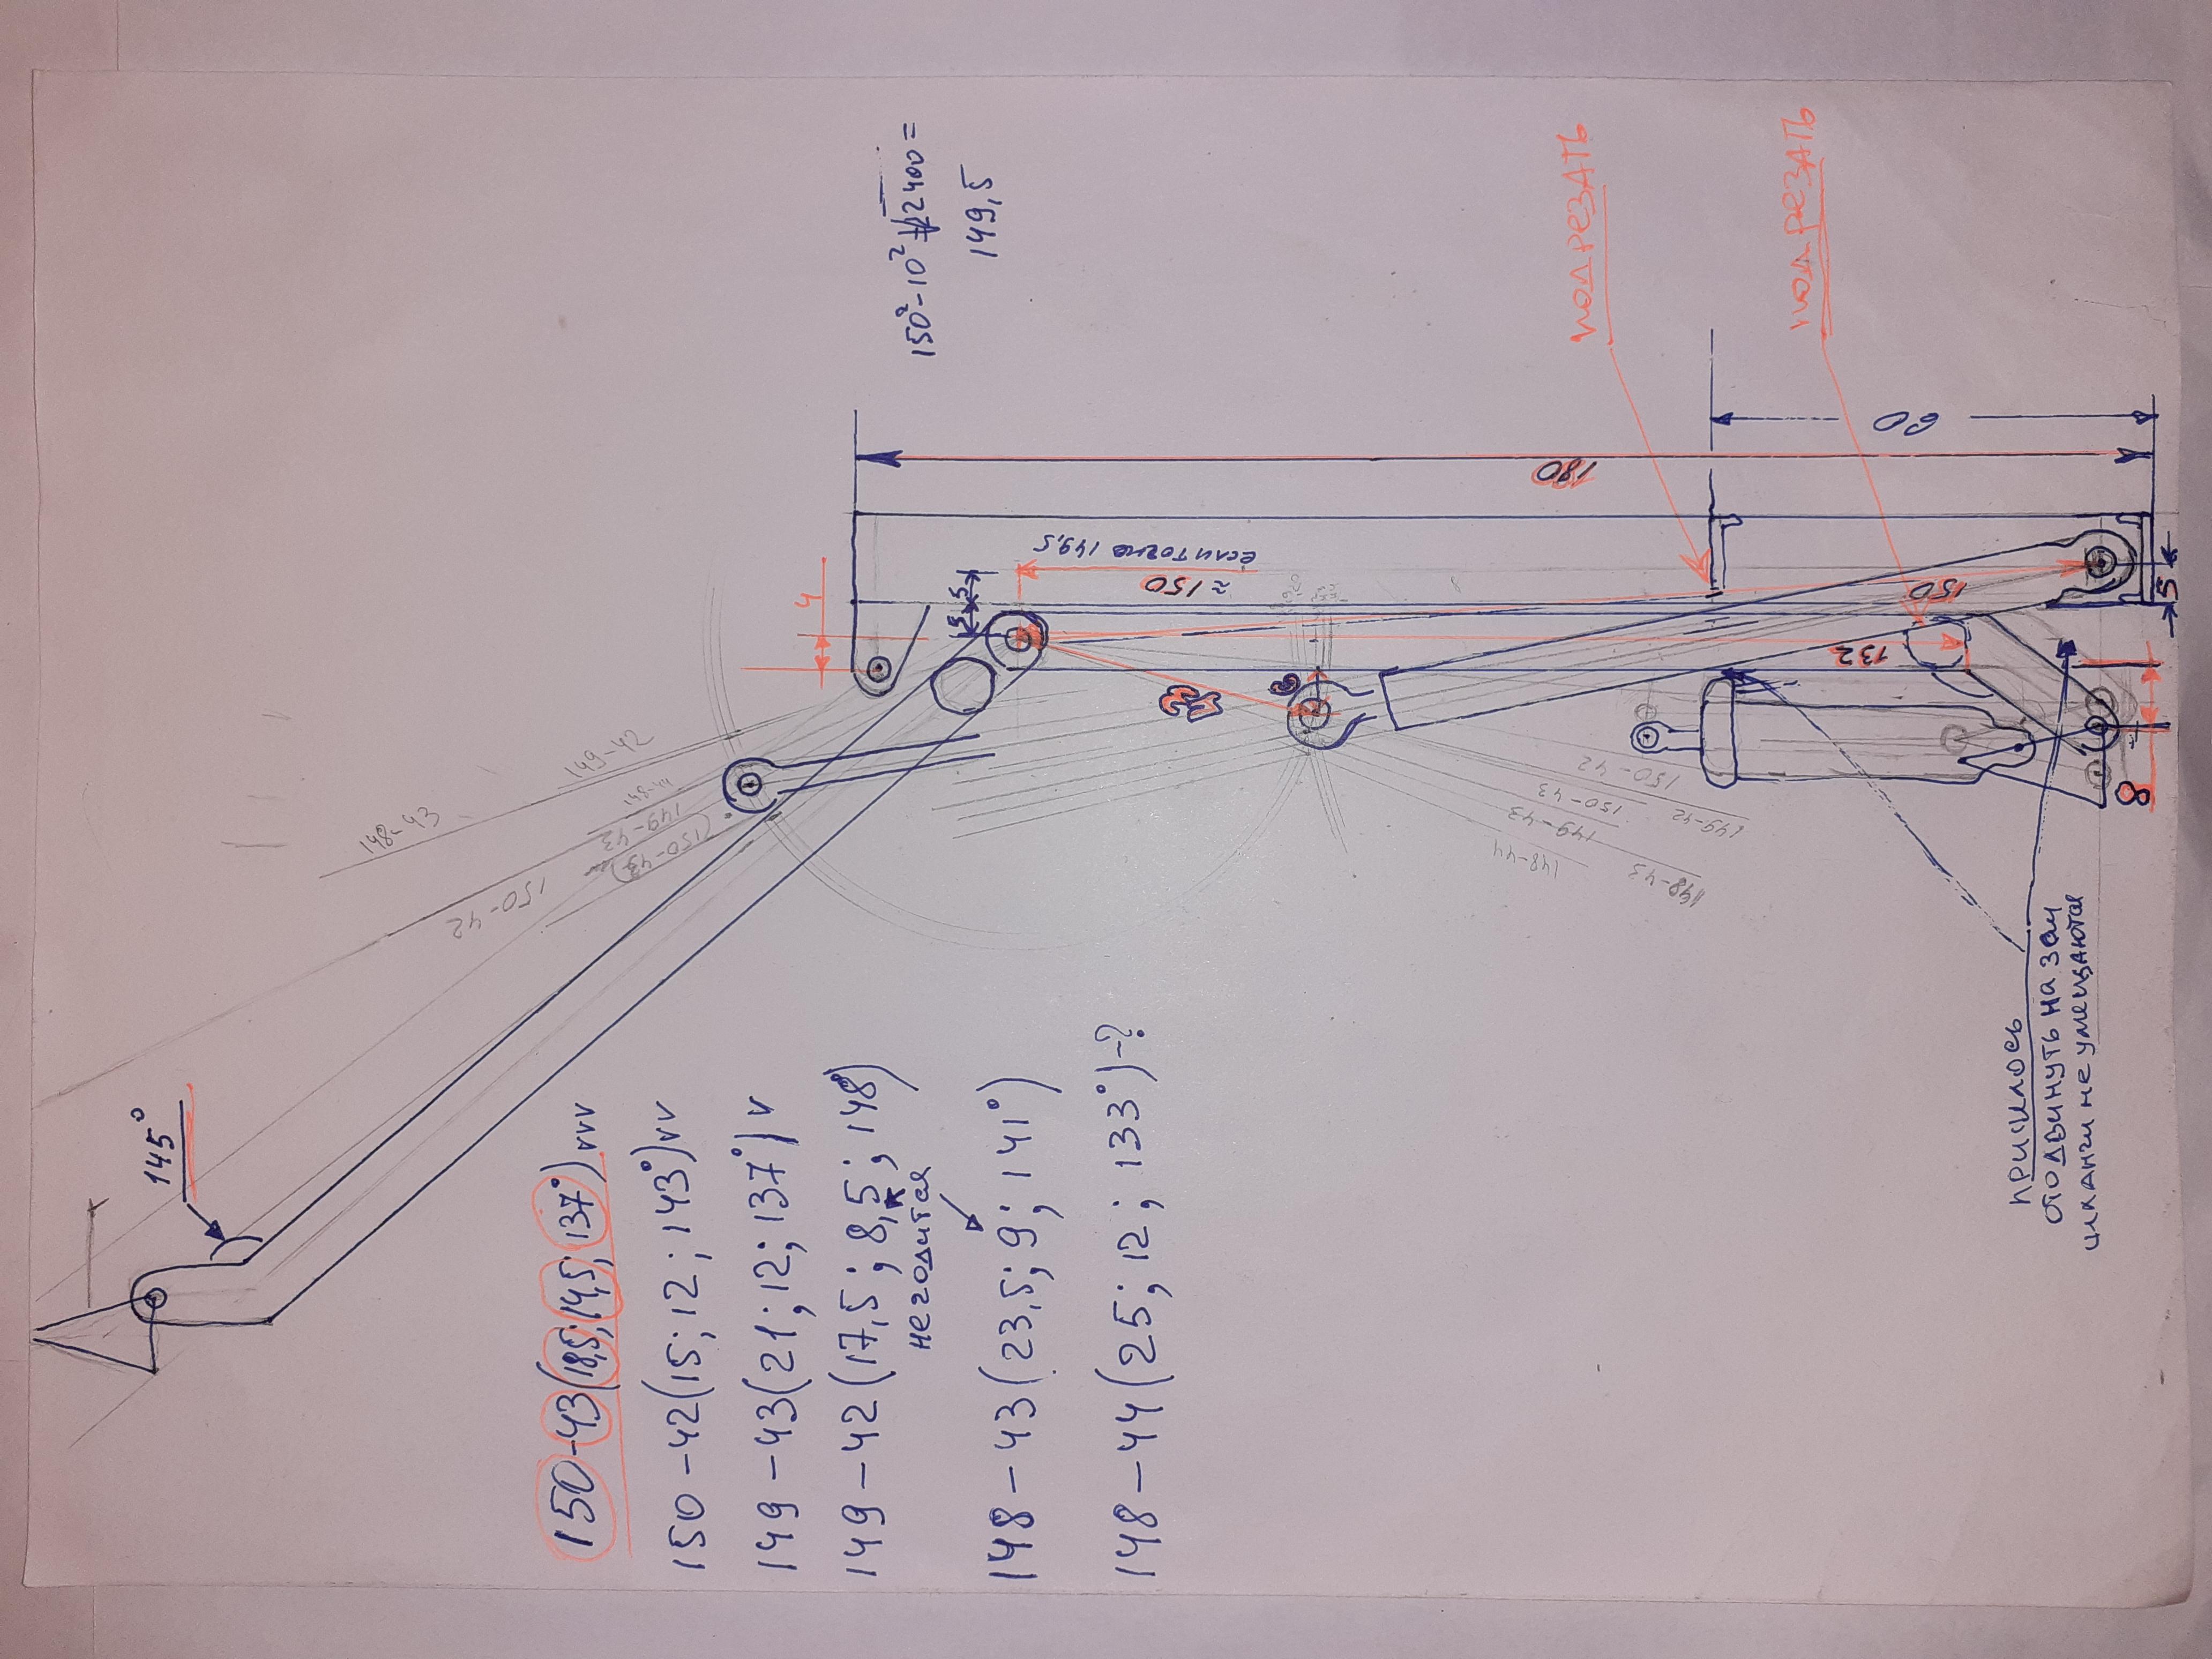 145°
150-43(18,5;14,5;137°)vvv
150-42(15;12;143°)vv
149-43(21;12;137°)v
149-42(17,5;8,5;148°)
не годится
148-43(23,5;9;141°)
148-44(25;12;133°)-?
150²-10²
22400=
149,5
подрезать
подрезать
180
60
если точно 149,5
≈150
150
132
43
4
5
5
6
5
8
148-43
149-42
148-44
149-43
(150-43)
150-42
150-42
149-42
150-43
149-43
148-43
148-44
пришлось
отодвинуть на 3см
шланги не умещаются